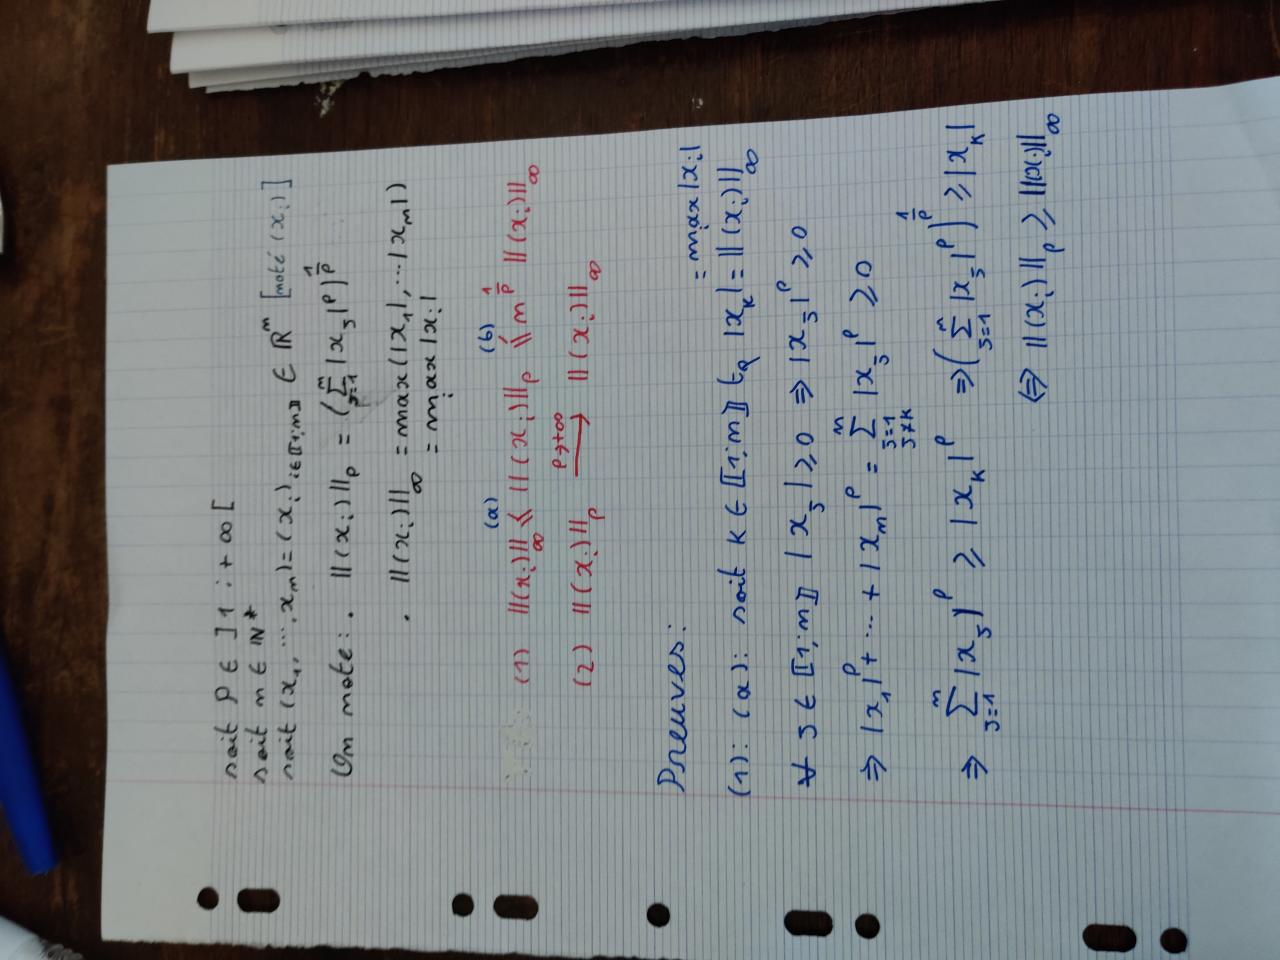 soit p ∈ ]1 ; +∞[
soit n ∈ ℕ*
soit (x₁, ..., xₙ) = (xᵢ)ᵢ∈⟦1;n⟧ ∈ ℝⁿ [noté (xᵢ)]
On note : . ||(xᵢ)||ₚ = (∑ⱼ₌₁ⁿ |xⱼ|ᵖ)^(1/p)
. ||(xᵢ)||∞ = max(|x₁|, ... |xₙ|)
= maxᵢ |xᵢ|
(1) ||(xᵢ)||∞ ≤(a) ||(xᵢ)||ₚ ≤(b) n^(1/p) ||(xᵢ)||∞
(2) ||(xᵢ)||ₚ ⟶(p→+∞) ||(xᵢ)||∞
Preuves :
(1) : (a) : soit k ∈ ⟦1;n⟧ tq |xₖ| = ||(xᵢ)||∞ = maxᵢ |xᵢ|
∀ j ∈ ⟦1;n⟧ |xⱼ| ≥ 0 ⇒ |xⱼ|ᵖ ≥ 0
⇒ |x₁|ᵖ + ... + |xₙ|ᵖ = ∑ⱼ₌₁, ⱼ≠ₖⁿ |xⱼ|ᵖ ≥ 0
⇒ ∑ⱼ₌₁ⁿ |xⱼ|ᵖ ≥ |xₖ|ᵖ ⇒ (∑ⱼ₌₁ⁿ |xⱼ|ᵖ)^(1/p) ≥ |xₖ|
⇔ ||(xᵢ)||ₚ ≥ ||(xᵢ)||∞